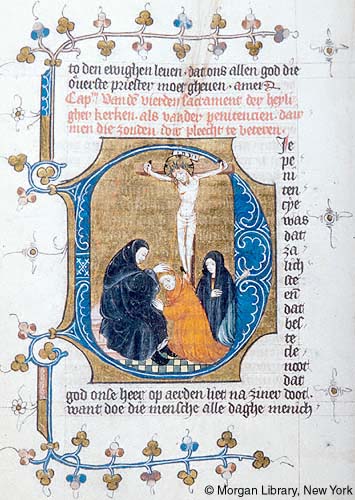 to den ewighen leuen · dat ons allen god die
ouerste priester moet gheuen · amen
Cap̄m van dē vierden sacrament der heyli
gher kerken · als vander penitencien · daer
men die zonden doir pleecht te beteren ·
Je
pe
ni
ten
cye
was
dat
za
lich
ste
en̄
dat
bes
te
de
noot
dat
god onse heer op aerden liet na zijnre doot.
want doe die mensche alle daghe menich
© Morgan Library, New York